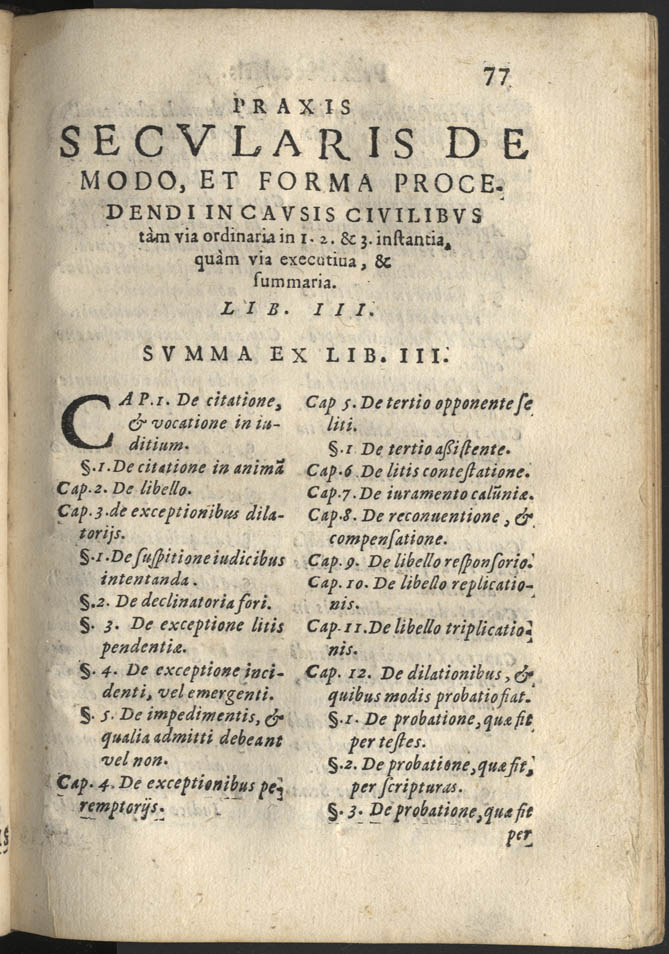 77
PRAXIS
SECVLARIS DE
MODO, ET FORMA PROCE-
DENDI IN CAVSIS CIVILIBVS
tàm via ordinaria in 1. 2. & 3. inſtantia,
quàm via executiua, &
ſummaria.
LIB. III.
SVMMA EX LIB. III.
CAP. 1. De citatione,
& vocatione in iu-
ditium.
§. 1. De citatione in animā
Cap. 2. De libello.
Cap. 3. de exceptionibus dila-
torijs.
§. 1. De ſuſpitione iudicibus
intentanda.
§. 2. De declinatoria fori.
§. 3. De exceptione litis
pendentiæ.
§. 4. De exceptione inci-
denti, vel emergenti.
§. 5. De impedimentis, &
qualia admitti debeant
vel non.
Cap. 4. De exceptionibus pe-
remptorijs.
Cap 5. De tertio opponente ſe
liti.
§. 1 De tertio aßiſtente.
Cap. 6 De litis conteſtatione.
Cap. 7. De iuramento calūniæ.
Cap. 8. De reconuentione, &
compenſatione.
Cap. 9. De libello reſponſorio.
Cap. 10. De libello replicatio-
nis.
Cap. 11. De libello triplicatio-
nis.
Cap. 12. De dilationibus, &
quibus modis probatio fiat.
§. 1. De probatione, quæ fit
per teſtes.
§. 2. De probatione, quæ fit,
per ſcripturas.
§. 3. De probatione, quæ fit
per